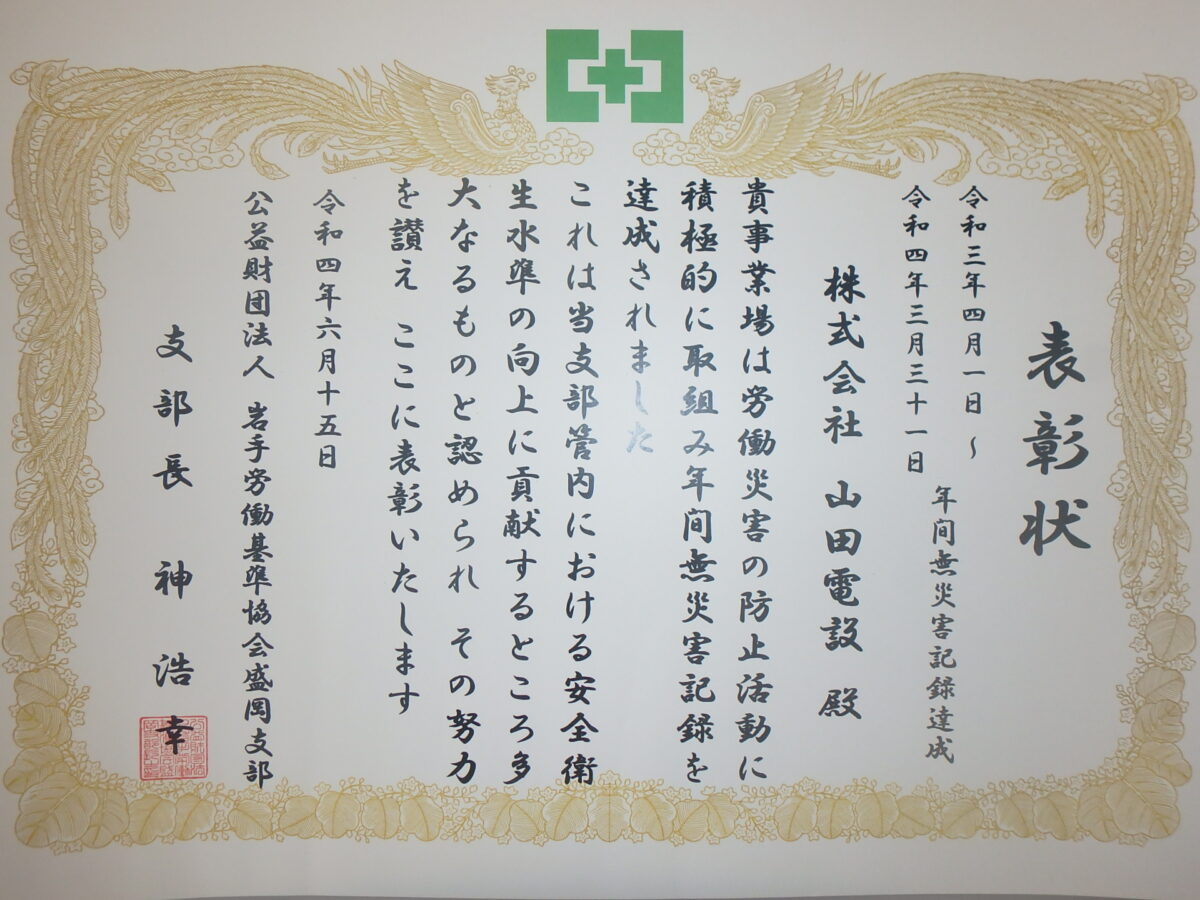 表彰状
令和三年四月一日 ~
令和四年三月三十一日
年間無災害記録達成
株式会社 山田電設 殿
貴事業場は労働災害の防止活動に
積極的に取組み年間無災害記録を
達成されました
これは当支部管内における安全衛
生水準の向上に貢献するところ多
大なるものと認められ その努力
を讃え ここに表彰いたします
令和四年六月十五日
公益財団法人 岩手労働基準協会盛岡支部
支部長 神 浩幸